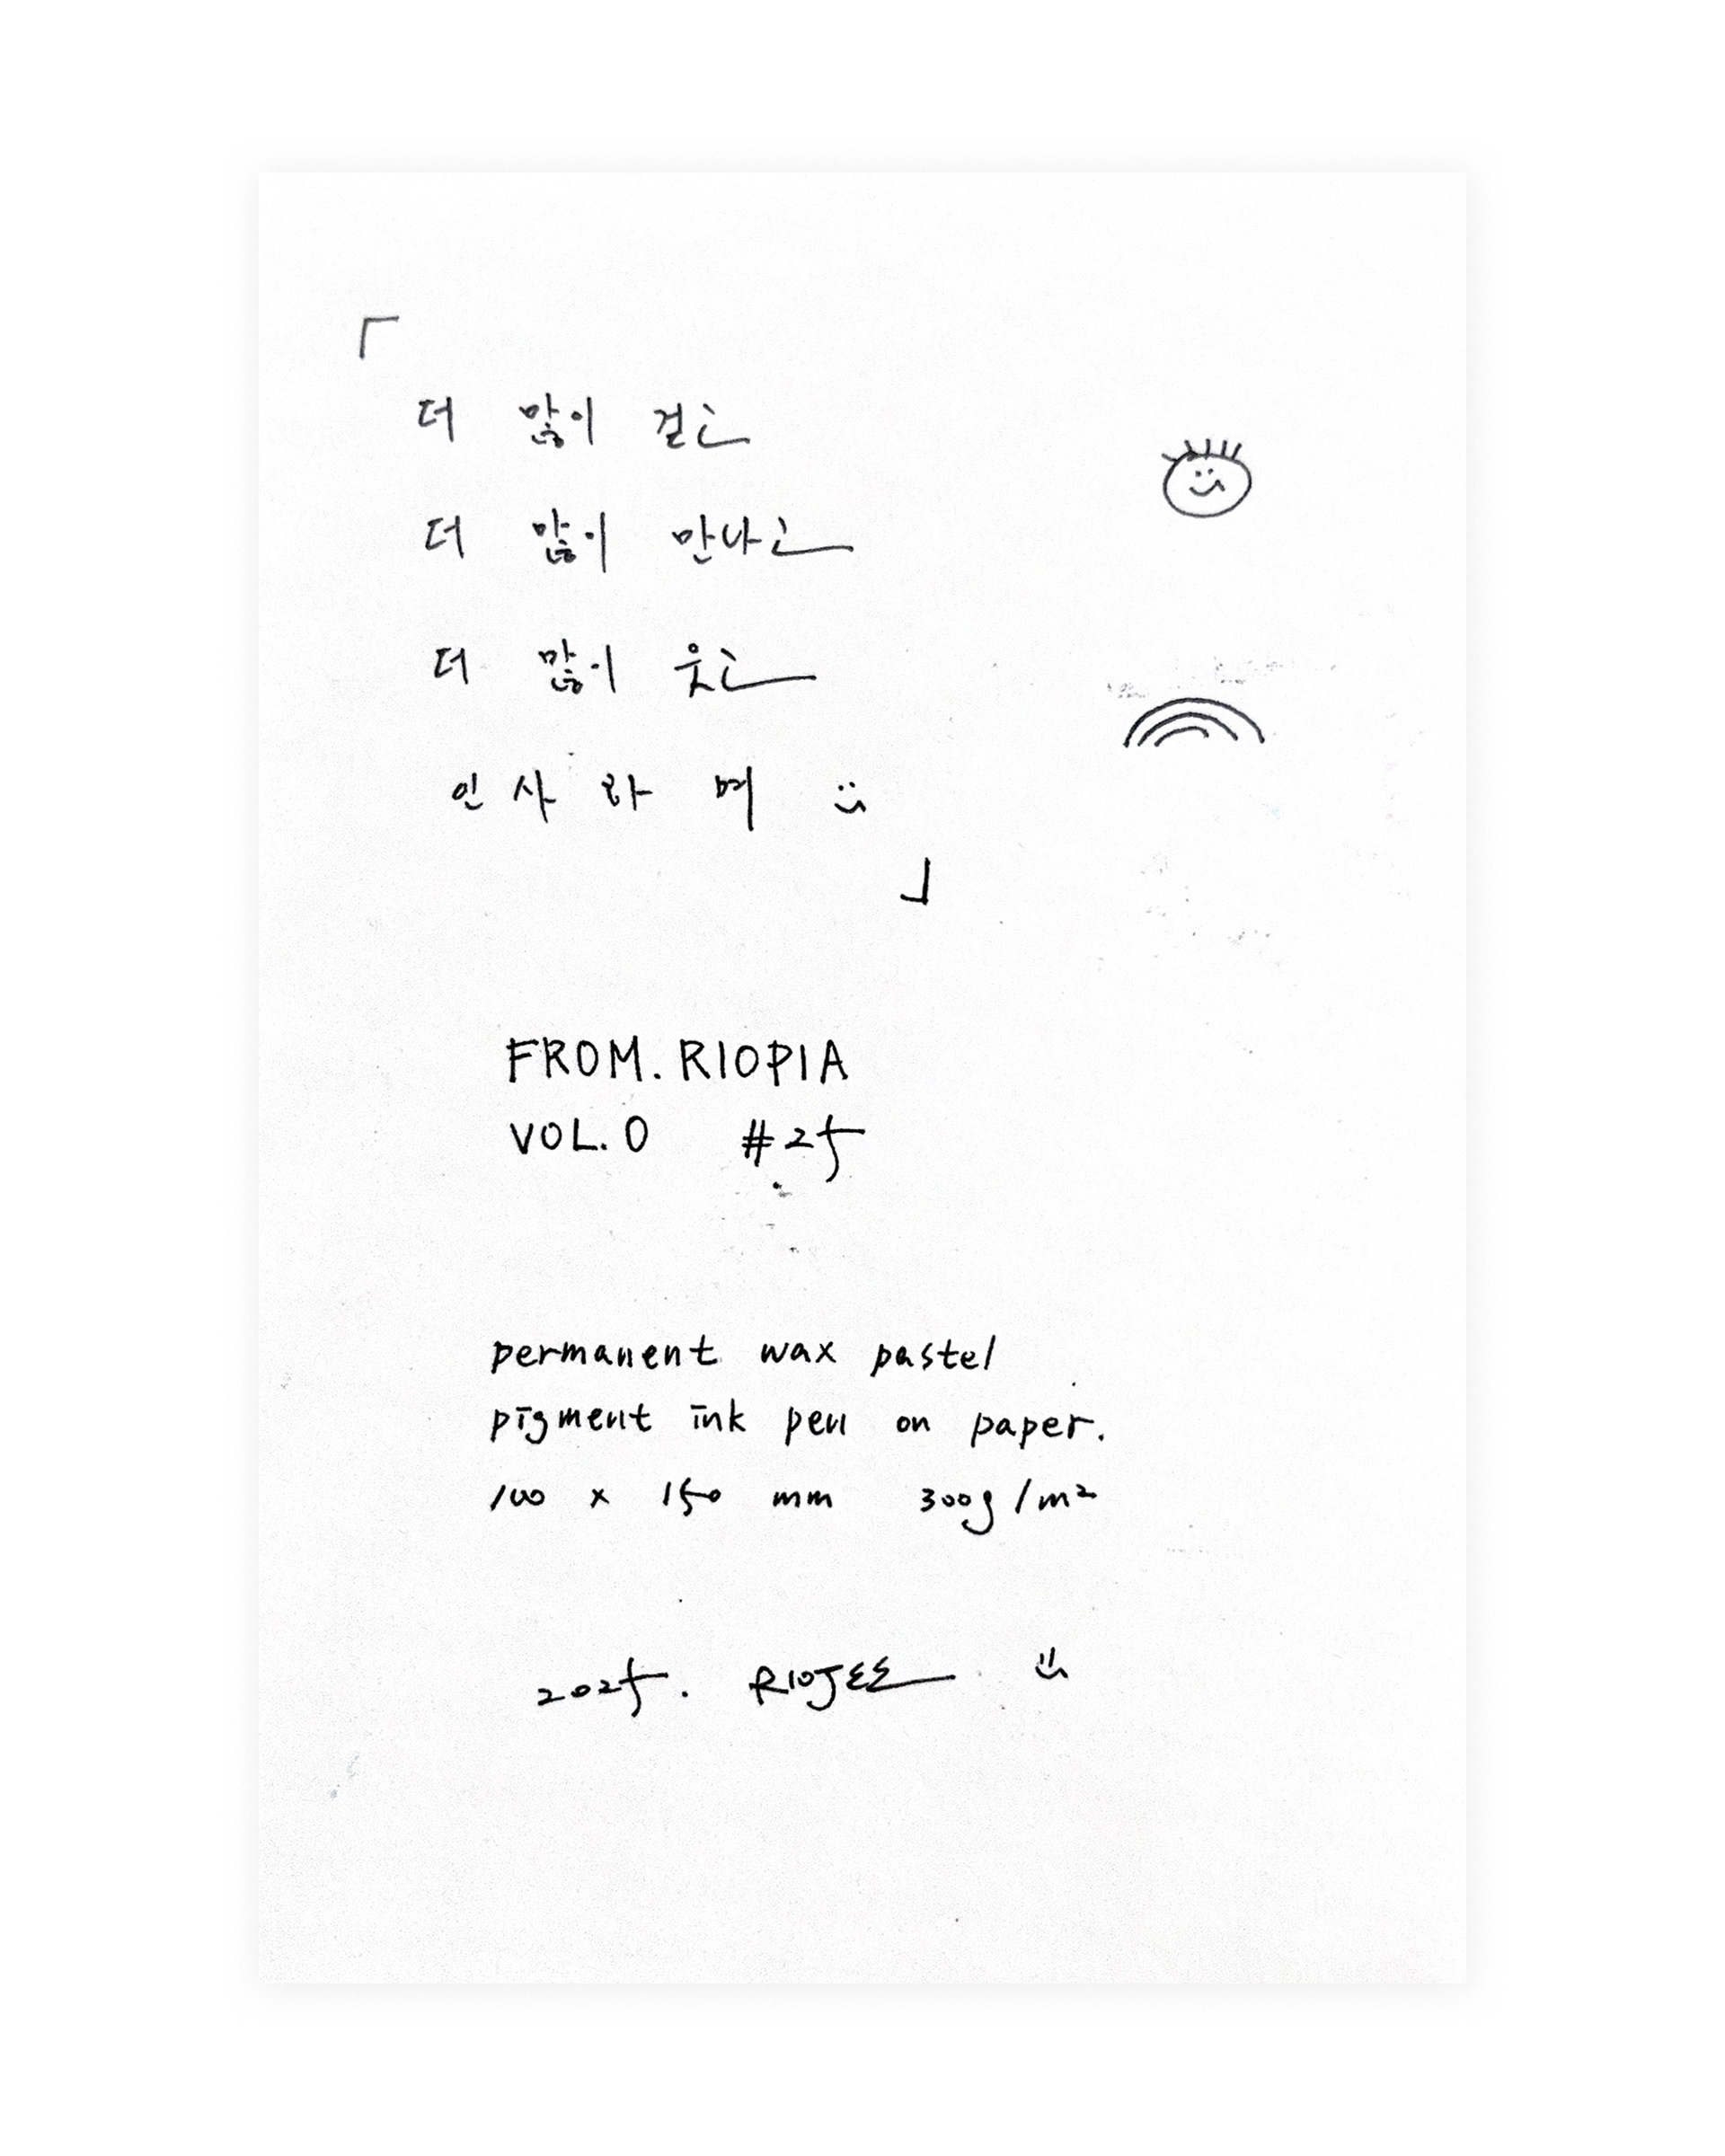 「
더 많이 걷고
더 많이 만나고
더 많이 웃고
인사하며
」
FROM. RIOPIA
VOL. 0 #25
permanent wax pastel
pigment ink pen on paper.
100 x 150 mm 300g/m²
2025. RIOJEE